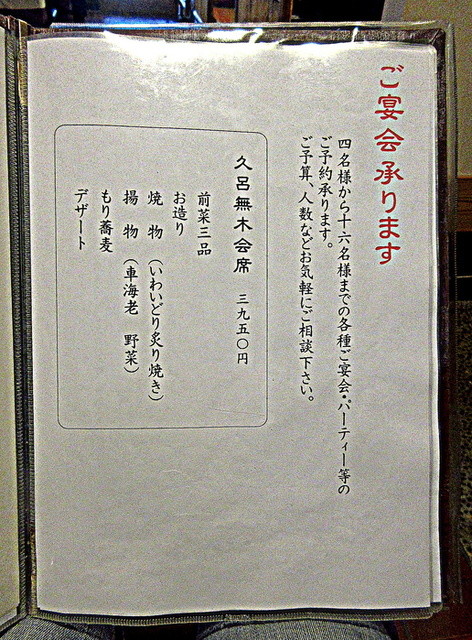 ご宴会承ります
四名様から十六名様までの各種ご宴会・パーティー等の
ご予約承ります。
ご予算、人数などお気軽にご相談下さい。
久呂無木会席 三九五〇円
前菜三品
お造り
焼 物 (いわいどり炙り焼き)
揚 物 (車海老 野菜)
もり蕎麦
デザート